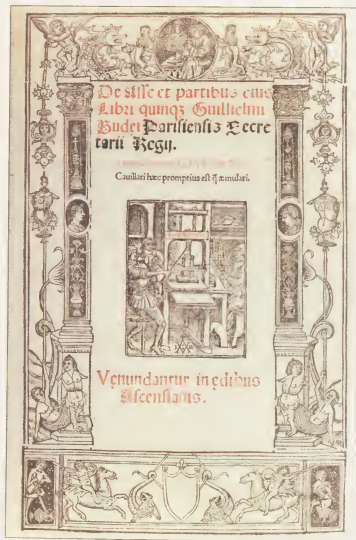 De Asse et partibus eius
Libri quinqꝫ Guillielmi
Budei Parisiensis Secre
tarii Regij.
Cauillari hæc promptius est q̃ æmulari.
Venundantur in ędibus
Ascensianis.